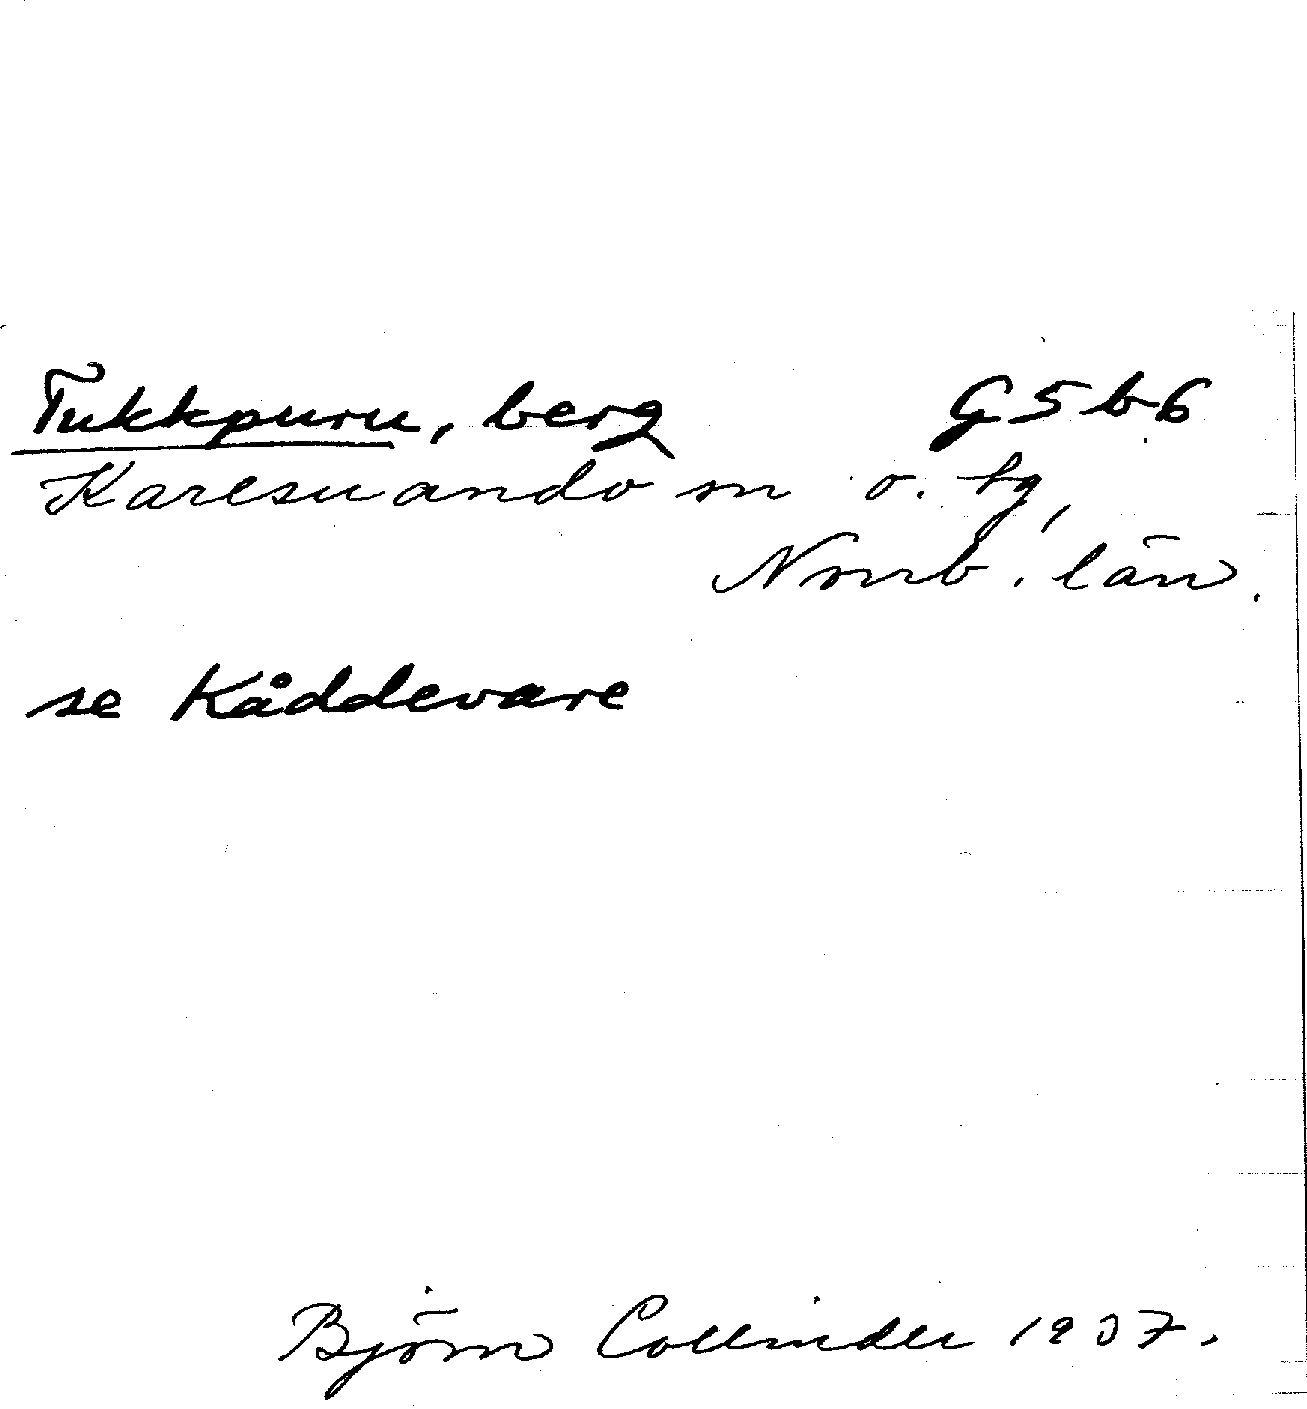 Tukkpuru, berg G5b6
Karesuando sn o. tg,
Norrb. län.
se Kåddevare
Björn Collinder 1937.